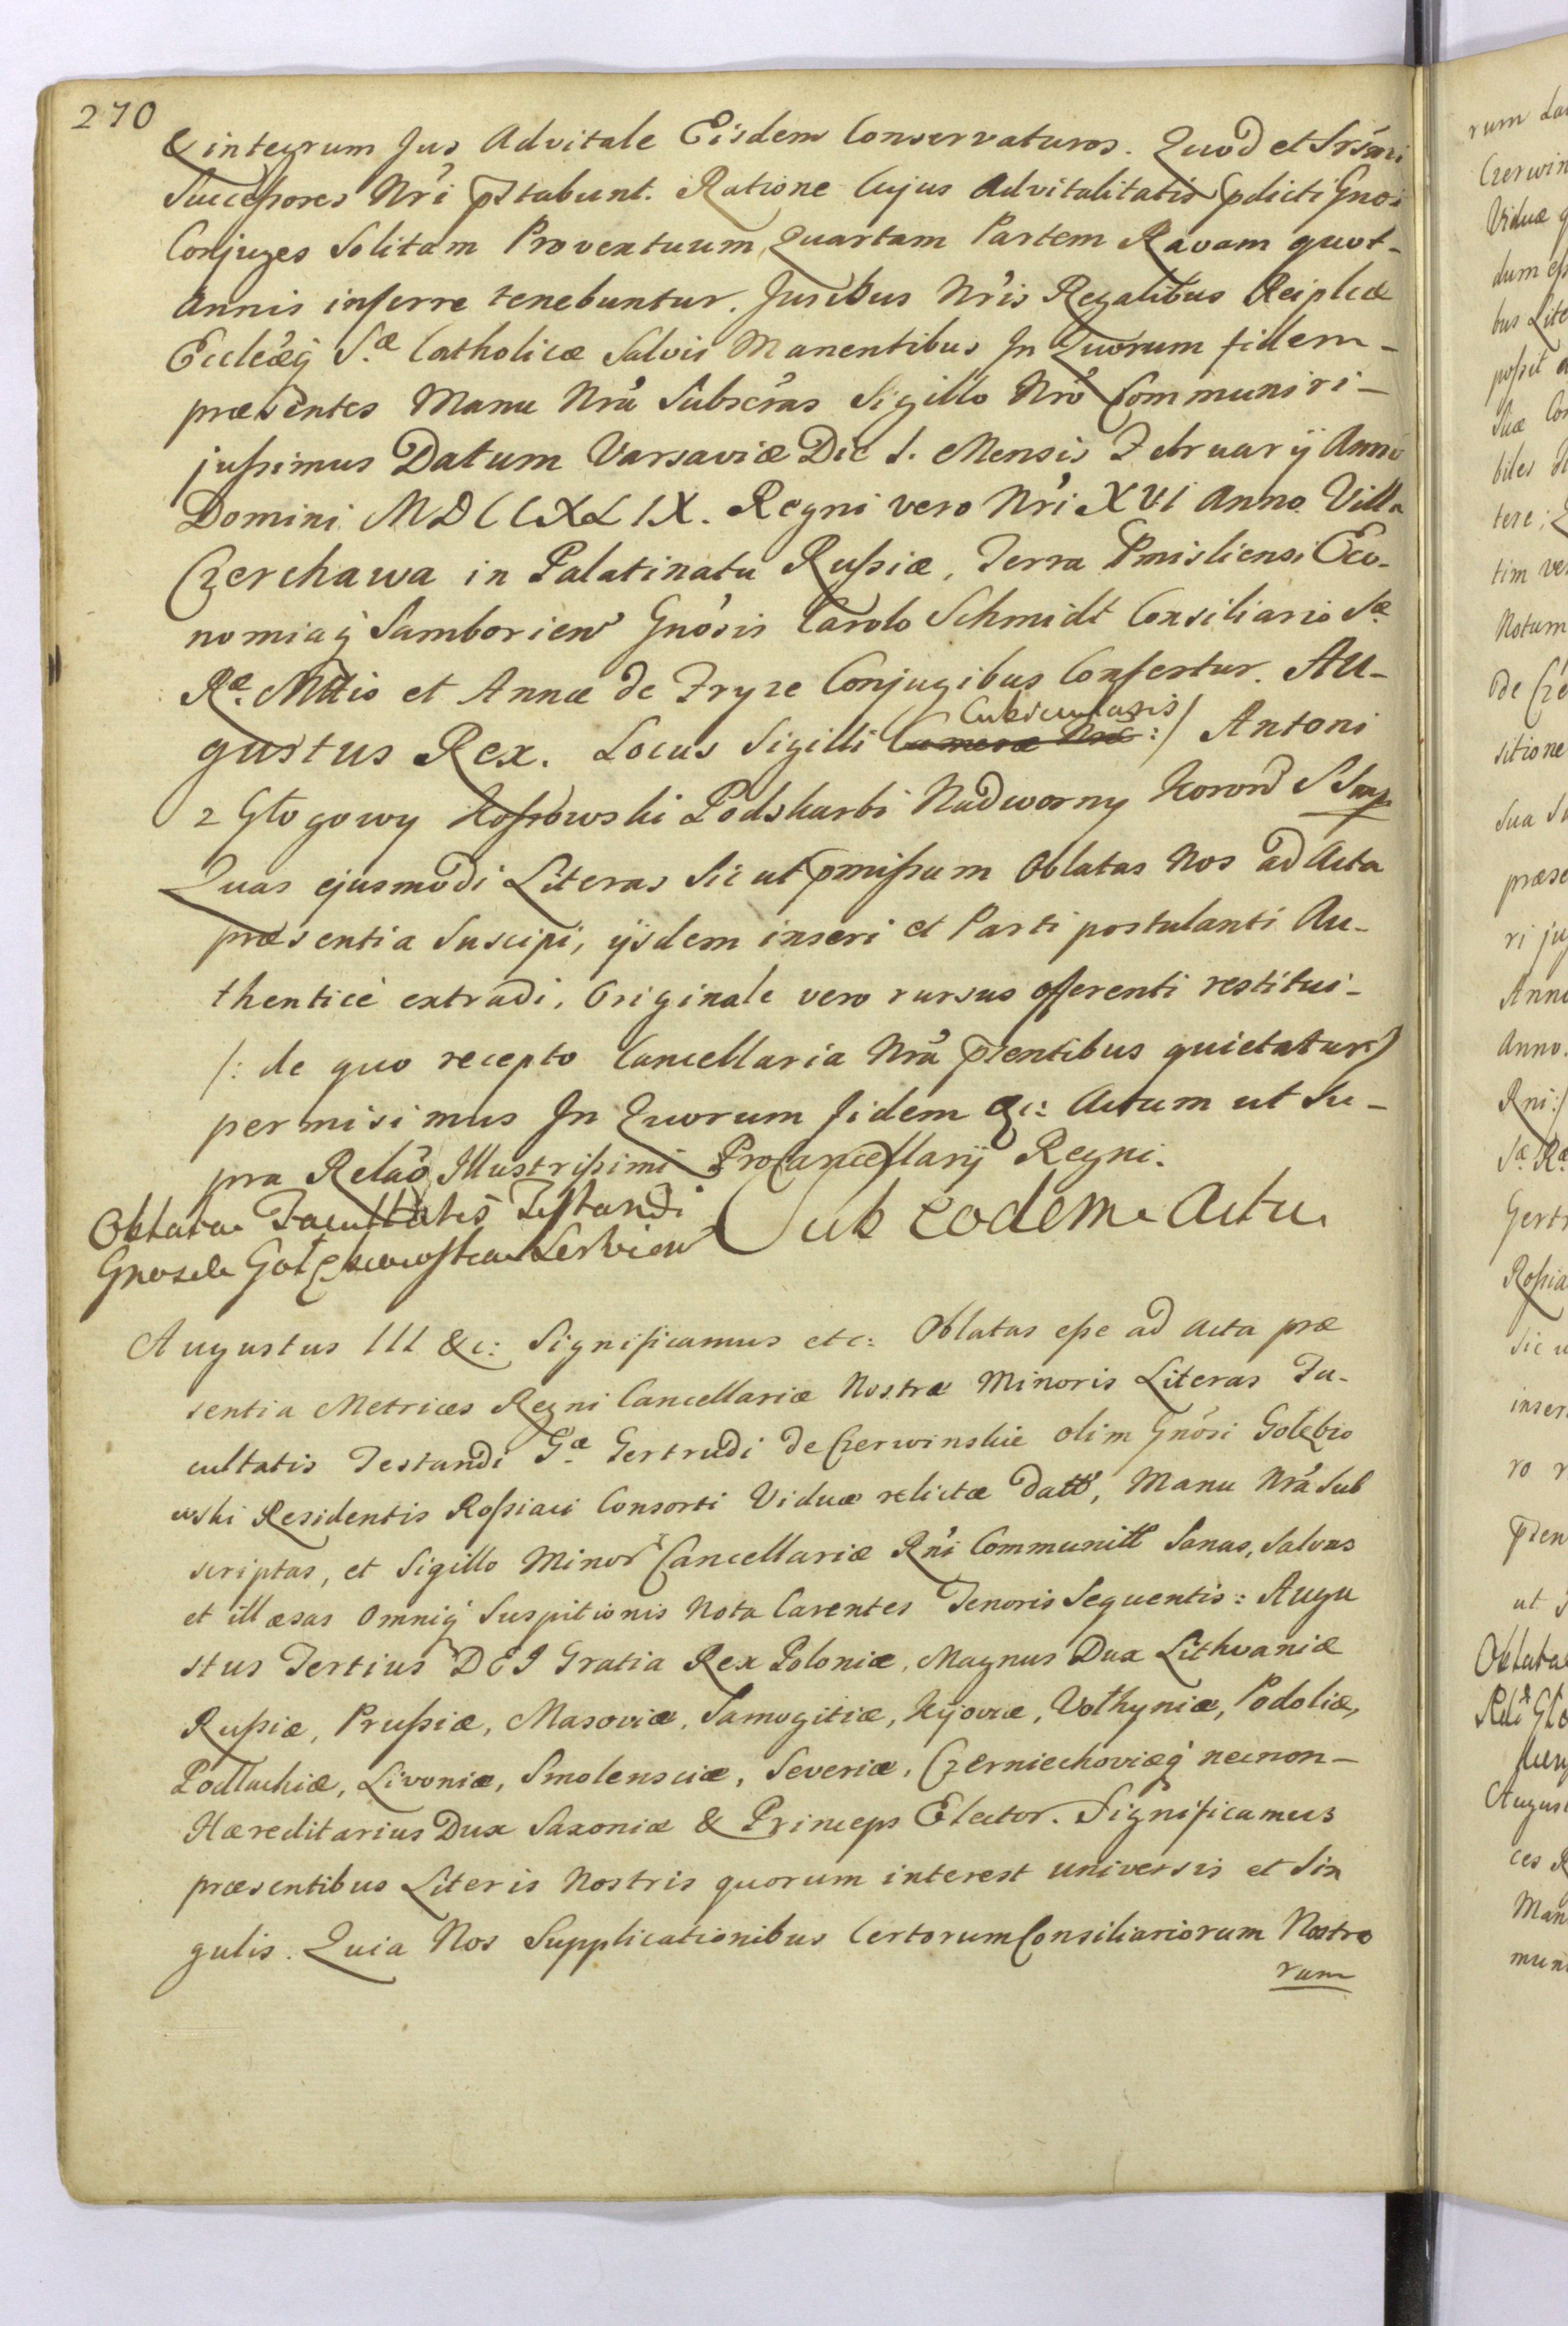 270
& integrum Jus Advitale Eisdem Conservaturos. Quod et Srsmi
Successores Nri pstabunt. Ratione Cujus Advitalitatis pdicti Gnosi
Conjuges Solitam Proventuum Quartam Partem Ravam quot-
Annis inferre tenebuntur. Juribus Nris Regalibus Reiplcæ
Eccleæq Sæ Catholicæ Salvis Manentibus In Quorum fidem-
præsentes Manu Nra Subscras Sigillo Nro Communiri-
jussimus Datum Varsaviæ Die 1. Mensis Februarij Anno
Domini MDCCXLIX. Regni vero Nri XVI Anno. Villa
Czerchawa in Palatinatu Russiæ, Terra Pmisliensi Eco-
nomiaq Samborien Gnosis Carolo Schmidt Consiliario Sæ
Ræ Mttis et Annæ de Fryze Conjugibus Confertur. Au-
gustus Rex. Locus Sigilli Cameræ Cubicularis :/ Antoni
z Głogowy Kossowski Podskarbi Nadworny Koron S S mp
Quas ejusmodi Literas Sic ut pmissum Oblatas Nos ad Acta
præsentia Suscipi, ijsdem inseri et Parti postulanti Au-
thentice extradi, Originale vero rursus offerenti restitui-
/: de quo recepto Cancellaria Nra psentibus quietatur :/
permisimus In Quorum fidem &c: Actum ut Su-
pra Relao Illustrissimi Procancellarij Regni.
Oblata Facultatis Testandi
Sub eodem Actu
Augustus III &c: Significamus etc: Oblatas esse ad Acta præ
sentia Metrices Regni Cancellariæ Nostræ Minoris Literas Fa-
cultatis Testandi Gæ Gertrudi de Czerwinskie olim Gnosi Golębio
wski Residentis Rossiaci Consorti Viduæ relictæ Datt, Manu Nra Sub
scriptas, et Sigillo Minor Cancellariæ Rni Communitt Sanas, Salvas
et illæsas Omniq Suspitionis Nota Carentes Tenoris Sequentis: Augu
stus Tertius DEI Gratia Rex Poloniæ, Magnus Dux Lithvaniæ
Russiæ, Prussiæ, Masoviæ, Samogitiæ, Kijoviæ, Volhyniæ, Podoliæ,
Podlachiæ, Livoniæ, Smolensciæ, Severiæ, Czerniechoviæq necnon-
Hæreditarius Dux Saxoniæ & Princeps Elector. Significamus
præsentibus Literis Nostris quorum interest universis et Sin
gulis. Quia Nos Supplicationibus Certorum Consiliariorum Nostro
rum